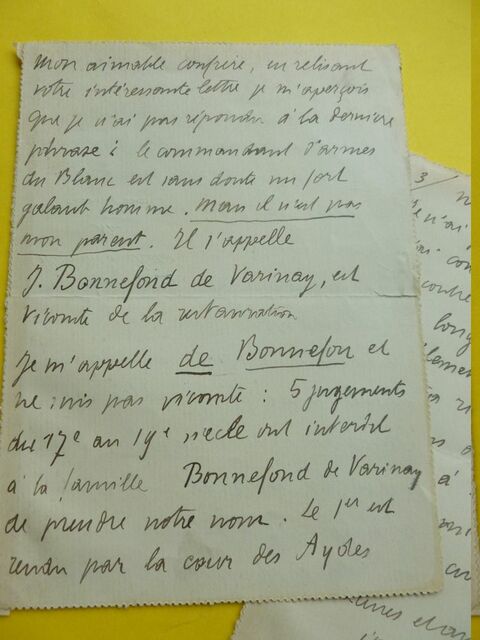 mon aimable confrère, en relisant
votre intéressante lettre je m'aperçois
que je n'ai pas répondu à la dernière
phrase : le commandant d'armes
du Blanc est sans doute un fort
galant homme. Mais il n'est pas
mon parent. Il s'appelle
J. Bonnefond de Varinay, est
Vicomte de la restauration
Je m'appelle de Bonnefon et
ne suis pas vicomte : 5 jugements
du 17e au 19e siècle ont interdit
à la famille Bonnefond de Varinay
de prendre notre nom. Le 1er est
rendu par la cour des Aydes
3